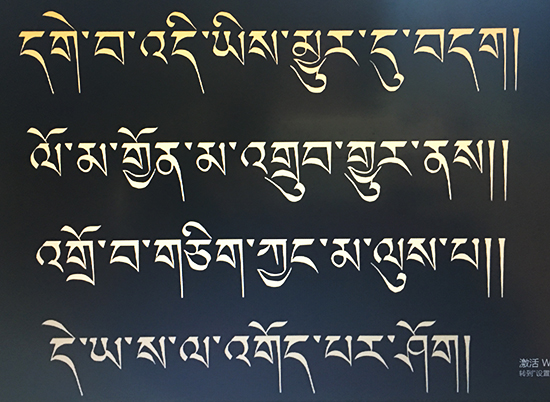 དགེ་བ་འདི་ཡིས་མྱུར་དུ་བདག།
ལོ་མ་གྱོན་མ་འགྲུབ་གྱུར་ནས།།
འགྲོ་བ་གཅིག་ཀྱང་མ་ལུས་པ།།
དེ་ཡ་ས་ལ་འགོད་པར་ཤོག།
激活 W
转到"设置